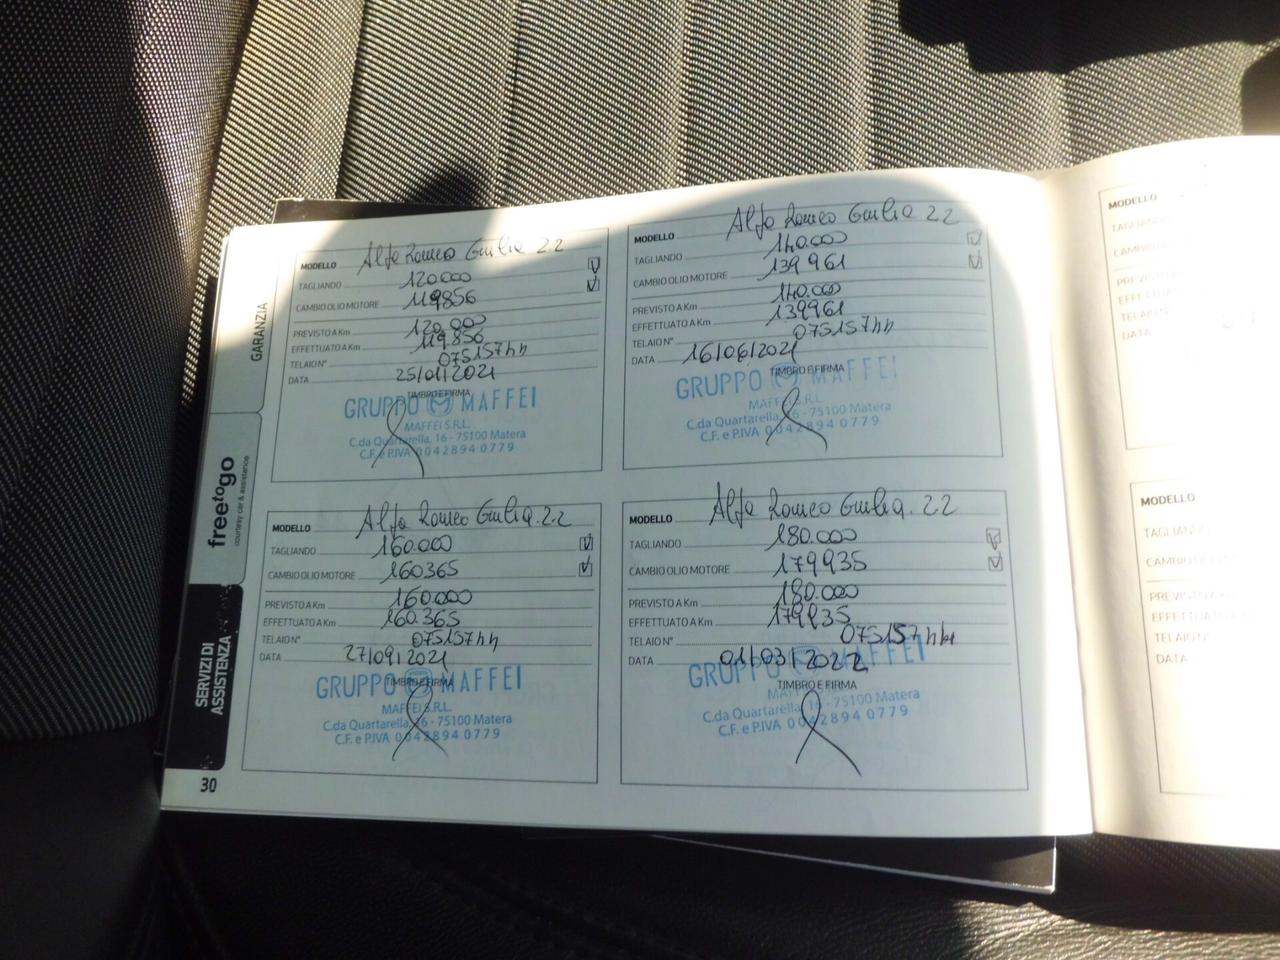 GARANZIA
freetogo
courtesy car & assistance
SERVIZI DI
ASSISTENZA
30
MODELLO Alfa Romeo Giulia 2.2
TAGLIANDO 120.000
CAMBIO OLIO MOTORE 119856
PREVISTO A Km 120.000
EFFETTUATO A Km 119.856
TELAIO N° 075157
DATA 25/01/2021
TIMBRO E FIRMA
GRUPPO MAFFEI
MAFFEI S.R.L.
C.da Quartarella, 16 - 75100 Matera
C.F. e P.IVA 00428940779
MODELLO Alfa Romeo Giulia 2.2
TAGLIANDO 140.000
CAMBIO OLIO MOTORE 139961
PREVISTO A Km 140.000
EFFETTUATO A Km 139961
TELAIO N° 075157
DATA 16/06/2021
TIMBRO E FIRMA
GRUPPO MAFFEI
MAFFEI S.R.L.
C.da Quartarella, 16 - 75100 Matera
C.F. e P.IVA 00428940779
MODELLO Alfa Romeo Giulia 2.2
TAGLIANDO 160.000
CAMBIO OLIO MOTORE 160365
PREVISTO A Km 160.000
EFFETTUATO A Km 160.365
TELAIO N° 075157
DATA 27/09/2021
TIMBRO E FIRMA
GRUPPO MAFFEI
MAFFEI S.R.L.
C.da Quartarella, 16 - 75100 Matera
C.F. e P.IVA 00428940779
MODELLO Alfa Romeo Giulia 2.2
TAGLIANDO 180.000
CAMBIO OLIO MOTORE 179935
PREVISTO A Km 180.000
EFFETTUATO A Km 179935
TELAIO N° 075157
DATA 01/03/2022
TIMBRO E FIRMA
GRUPPO MAFFEI
C.da Quartarella, 16 - 75100 Matera
C.F. e P.IVA 00428940779
MODELLO
TAGLIANDO
CAMBIO
PREVISTO A
EFFETTUATO
TELAIO N°
DATA
MODELLO
TAGLIANDO
CAMBIO
PREVISTO A Km
EFFETTUATO A Km
TELAIO N°
DATA